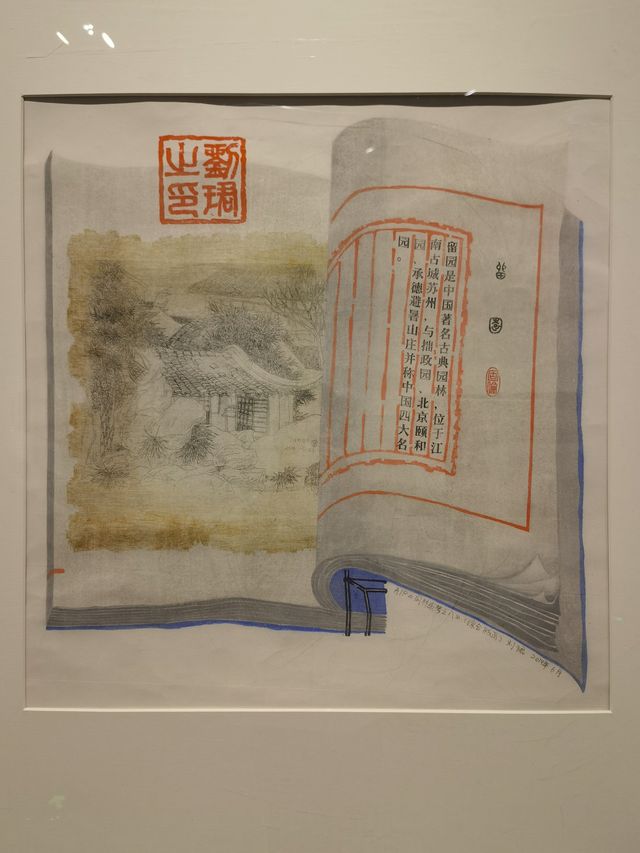 劉珺
之印
留园是中国著名古典园林，位于江
南古城苏州，与拙政园、北京颐和
园、承德避暑山庄并称中国四大名
园。
刘珺